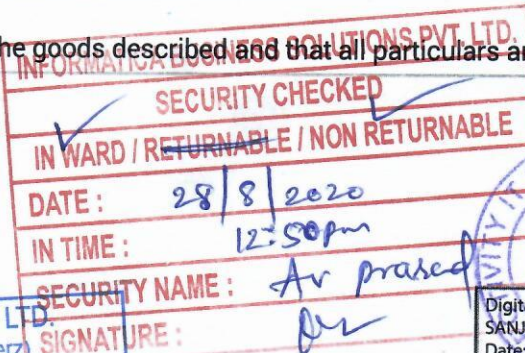 he goods described and that all particulars ar
INFORMATICA BUSINESS SOLUTIONS PVT. LTD.
SECURITY CHECKED
IN WARD / RETURNABLE / NON RETURNABLE
DATE : 28/8/2020
IN TIME : 12:50pm
SECURITY NAME : Av prased
SIGNATURE :
LTD.
erz)
VITY IT
Digita
SANJ
Date: